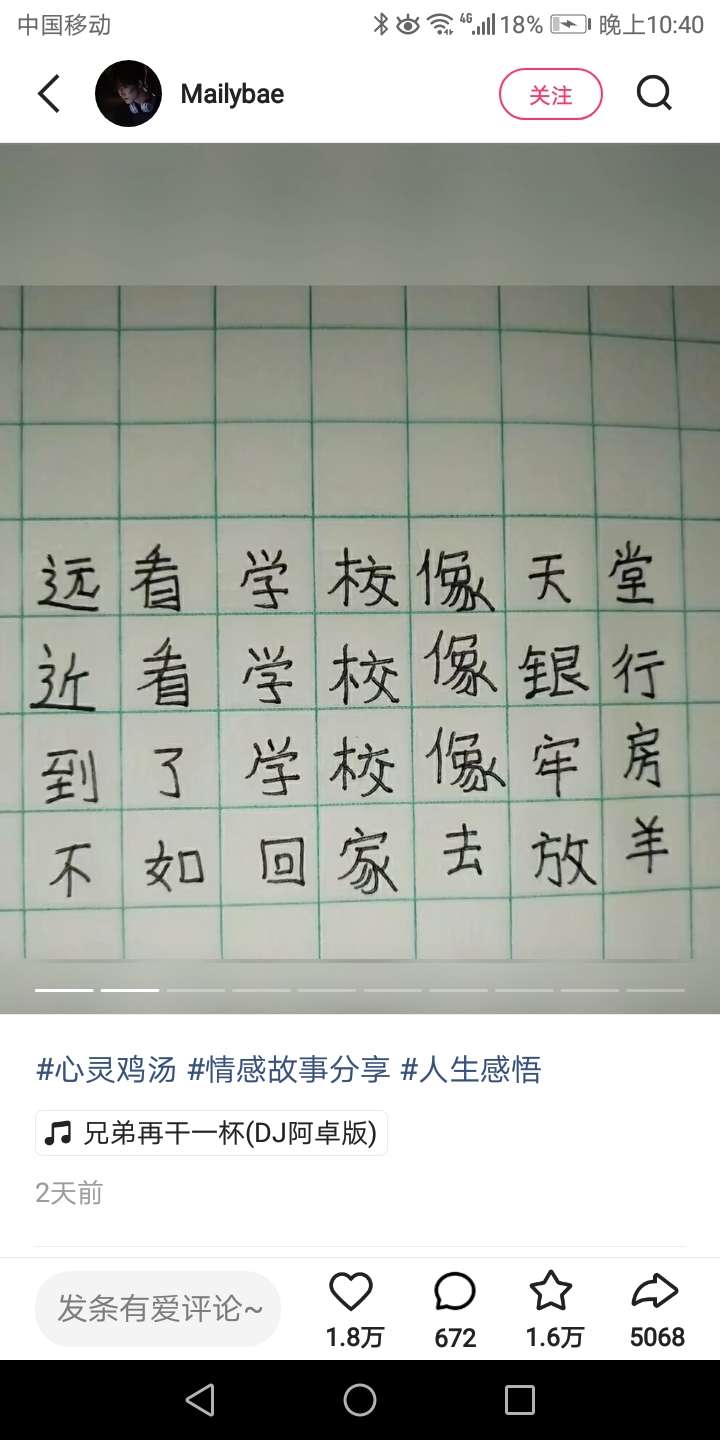 中国移动 4G 18% 晚上10:40
Mailybae 关注
远看学校像天堂
近看学校像银行
到了学校像牢房
不如回家去放羊
#心灵鸡汤 #情感故事分享 #人生感悟
兄弟再干一杯(DJ阿卓版)
2天前
发条有爱评论~ 1.8万 672 1.6万 5068